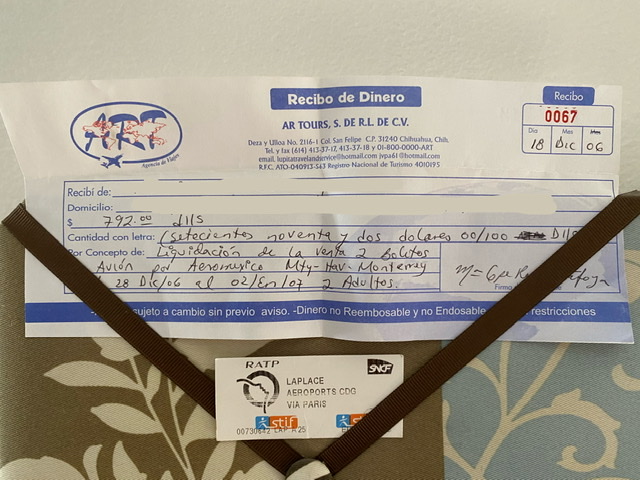 Recibo de Dinero
Recibo
0067
ART
Agencia de Viajes
AR TOURS, S. DE R.L. DE C.V.
Deza y Ulloa No. 2116-1 Col. San Felipe C.P. 31240 Chihuahua, Chih.
Tel. y fax (614) 413-37-17, 413-37-18 y 01-800-0000-ART
email. lupitatravelandservice@hotmail.com jvpa61@hotmail.com
R.F.C. ATO-040913-S63 Registro Nacional de Turismo 4010195
Dia Mes
18 DIC 06
Recibí de:
Domicilio:
$ 792.00 dlls
Cantidad con letra: (setecientos noventa y dos dolares 00/100 Dlls
Por Concepto de: Liquidación de la venta 2 Bolitos
Avion por Aeromexico Mty-Hav-Monterrey
28 Dic/06 al 02/En/07 2 Adultos.
Firma
sujeto a cambio sin previo aviso. -Dinero no Reembosable y no Endosable restricciones
RATP
SNCF
LAPLACE
AEROPORTS CDG
VIA PARIS
stif
stif
00730642 LAP A 25